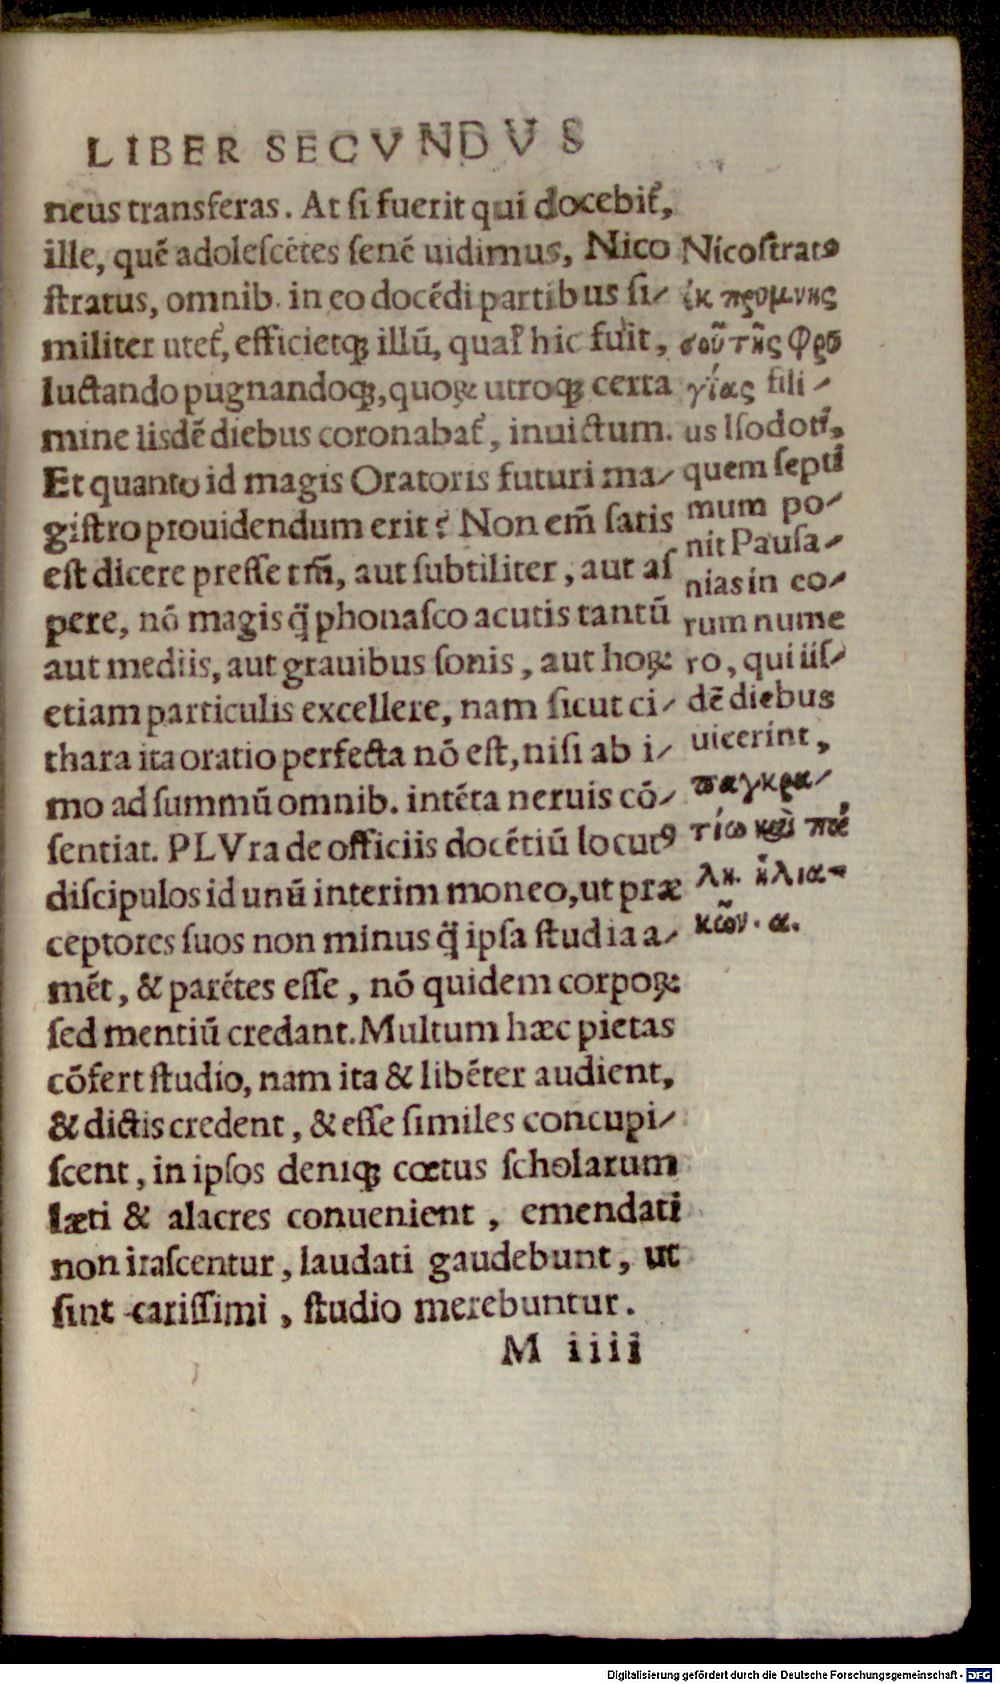 LIBER SECVNDVS
neus transferas. At ſi fuerit qui docebit᷑,
ille, quē adoleſcētes ſenē uidimus, Nico
ſtratus, omnib. in eo docēdi partibus ſi-
militer utet᷑, efficietq; illū, qual᷑ hic fuit,
luctando pugnandoq;, quoꝝ utroq; certa
mine iisdē diebus coronabat᷑, inuictum.
Et quanto id magis Oratoris futuri ma-
giſtro prouidendum erit? Non em̄ ſatis
eſt dicere preſſe tm̄, aut ſubtiliter, aut aſ
pere, nō magis q̄ phonaſco acutis tantū
aut mediis, aut grauibus ſonis, aut hoꝝ
etiam particulis excellere, nam ſicut ci-
thara ita oratio perfecta nō eſt, niſi ab i-
mo ad ſummū omnib. intēta neruis cō-
ſentiat. PLVra de officiis docētiū locutꝰ
diſcipulos id unū interim moneo, ut præ
ceptores ſuos non minus q̄ ipſa ſtudia a-
mēt, & parētes eſſe, nō quidem corpoꝝ
ſed mentiū credant. Multum hæc pietas
cōfert ſtudio, nam ita & libēter audient,
& dictis credent, & eſſe ſimiles concupi-
ſcent, in ipſos deniq; cœtus ſcholarum
læti & alacres conuenient, emendati
non iraſcentur, laudati gaudebunt, ut
ſint cariſſimi, ſtudio merebuntur.
M iiii
Nicoſtratꝰ
ἐκ πρυμνης
σοῦ τῆς φρυ
γίας fili-
us Iſodoti,
quem ſepti
mum po-
nit Pauſa-
nias in eo-
rum nume
ro, qui iiſ-
dē diebus
uicerint,
παγκρα-
τίῳ καὶ πά
λη. ἠλια-
κῶν. α.
Digitalisierung gefördert durch die Deutsche Forschungsgemeinschaft - DFG